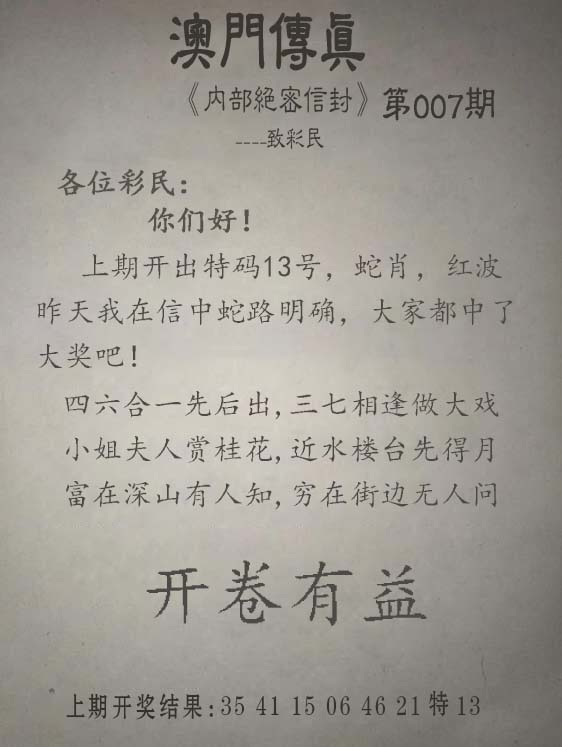 澳門傳眞
《内部絕密信封》第007期
----致彩民
各位彩民:
你们好!
上期开出特码13号，蛇肖，红波
昨天我在信中蛇路明确，大家都中了
大奖吧!
四六合一先后出,三七相逢做大戏
小姐夫人赏桂花,近水楼台先得月
富在深山有人知,穷在街边无人问
开卷有益
上期开奖结果:35 41 15 06 46 21 特 13